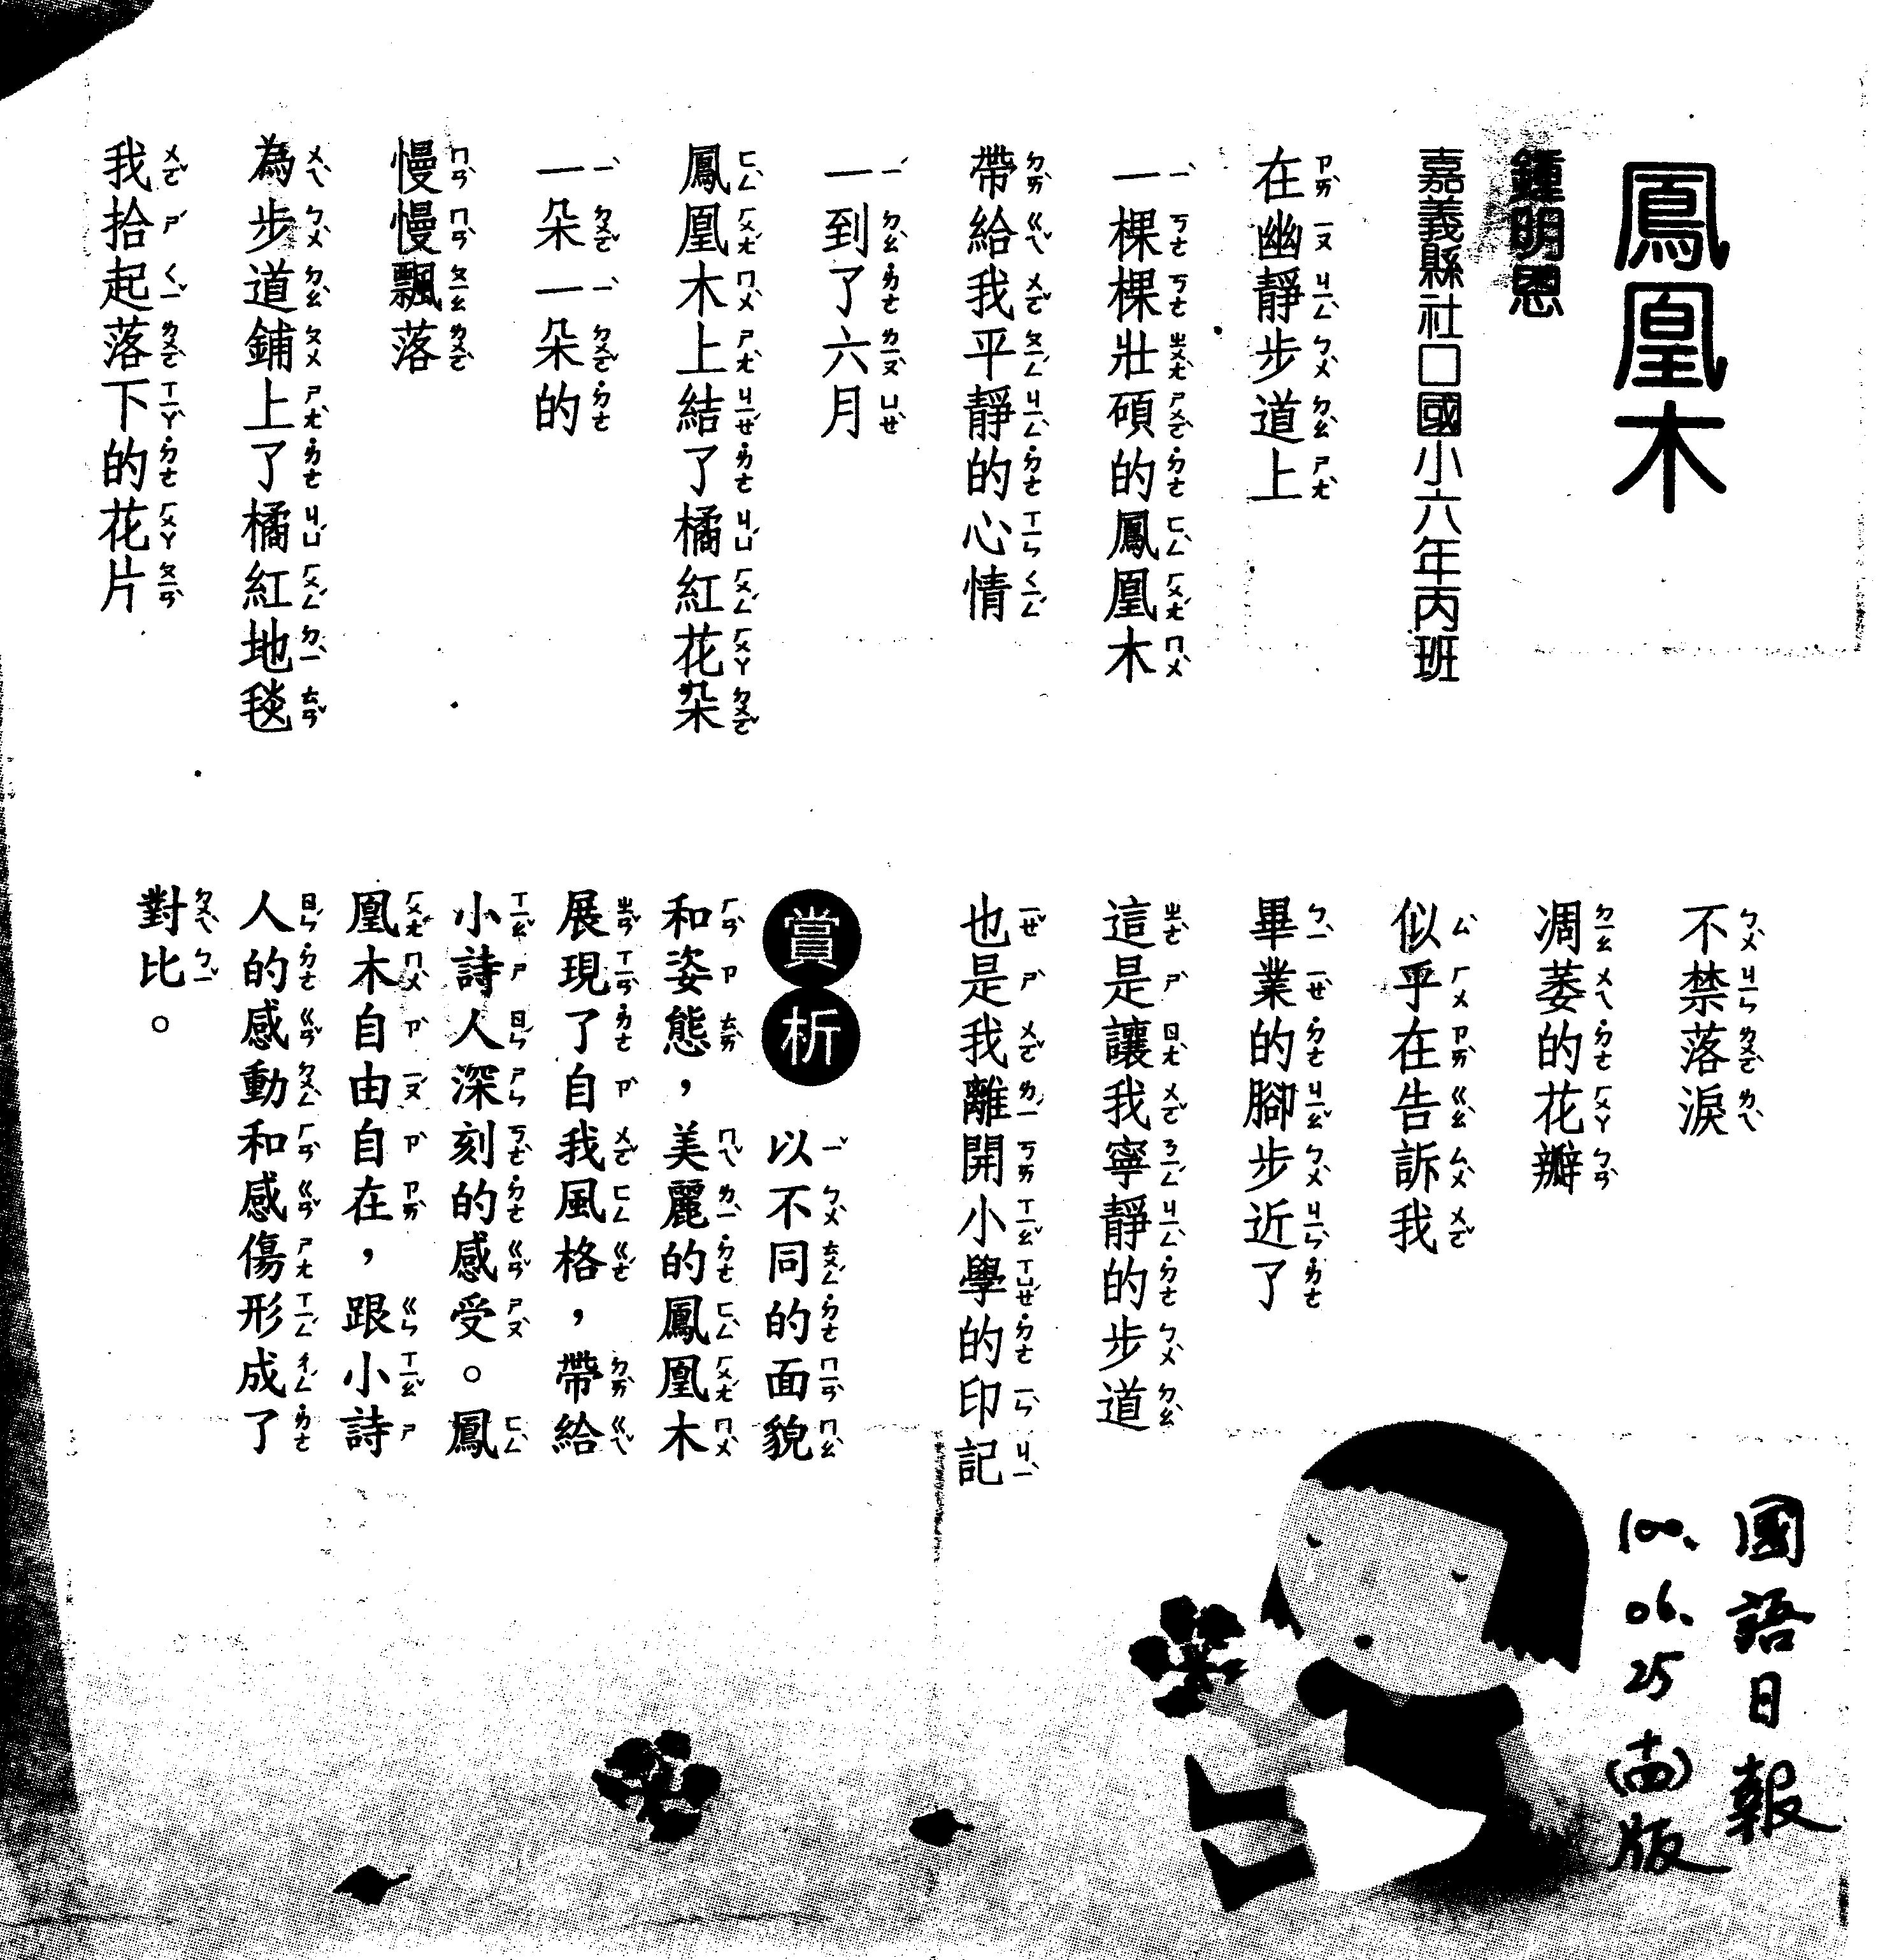 鳳凰木
鍾明恩
嘉義縣社口國小六年丙班
在幽靜步道上
一棵棵壯碩的鳳凰木
帶給我平靜的心情
一到了六月
鳳凰木上結了橘紅花朵
一朵一朵的
慢慢飄落
為步道鋪上了橘紅地毯
我拾起落下的花片
不禁落淚
凋萎的花瓣
似乎在告訴我
畢業的腳步近了
這是讓我寧靜的步道
也是我離開小學的印記
賞析
以不同的面貌
和姿態，美麗的鳳凰木
展現了自我風格，帶給
小詩人深刻的感受。鳳
凰木自由自在，跟小詩
人的感動和感傷形成了
對比。
國語日報
100.06.25(十四)版